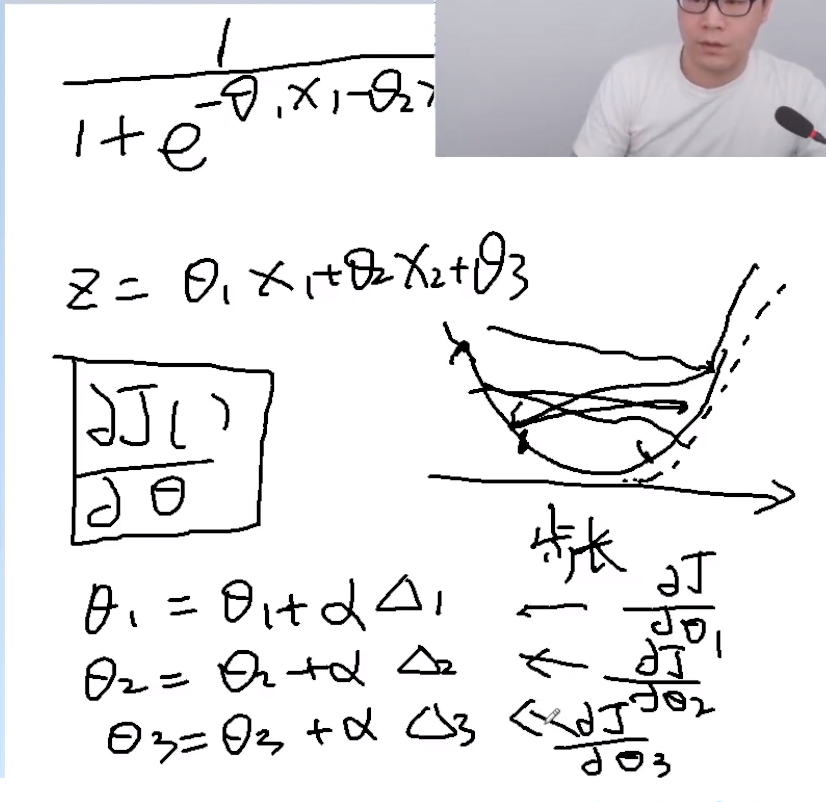 1
1+e^{-θ₁x₁-θ₂
z = θ₁x₁+θ₂x₂+θ₃
∂J( )
∂θ
步长
θ₁ = θ₁+α△₁ ← ∂J/∂θ₁
θ₂ = θ₂+α △₂ ← ∂J/∂θ₂
θ₃=θ₃ +α △₃ ← ∂J/∂θ₃